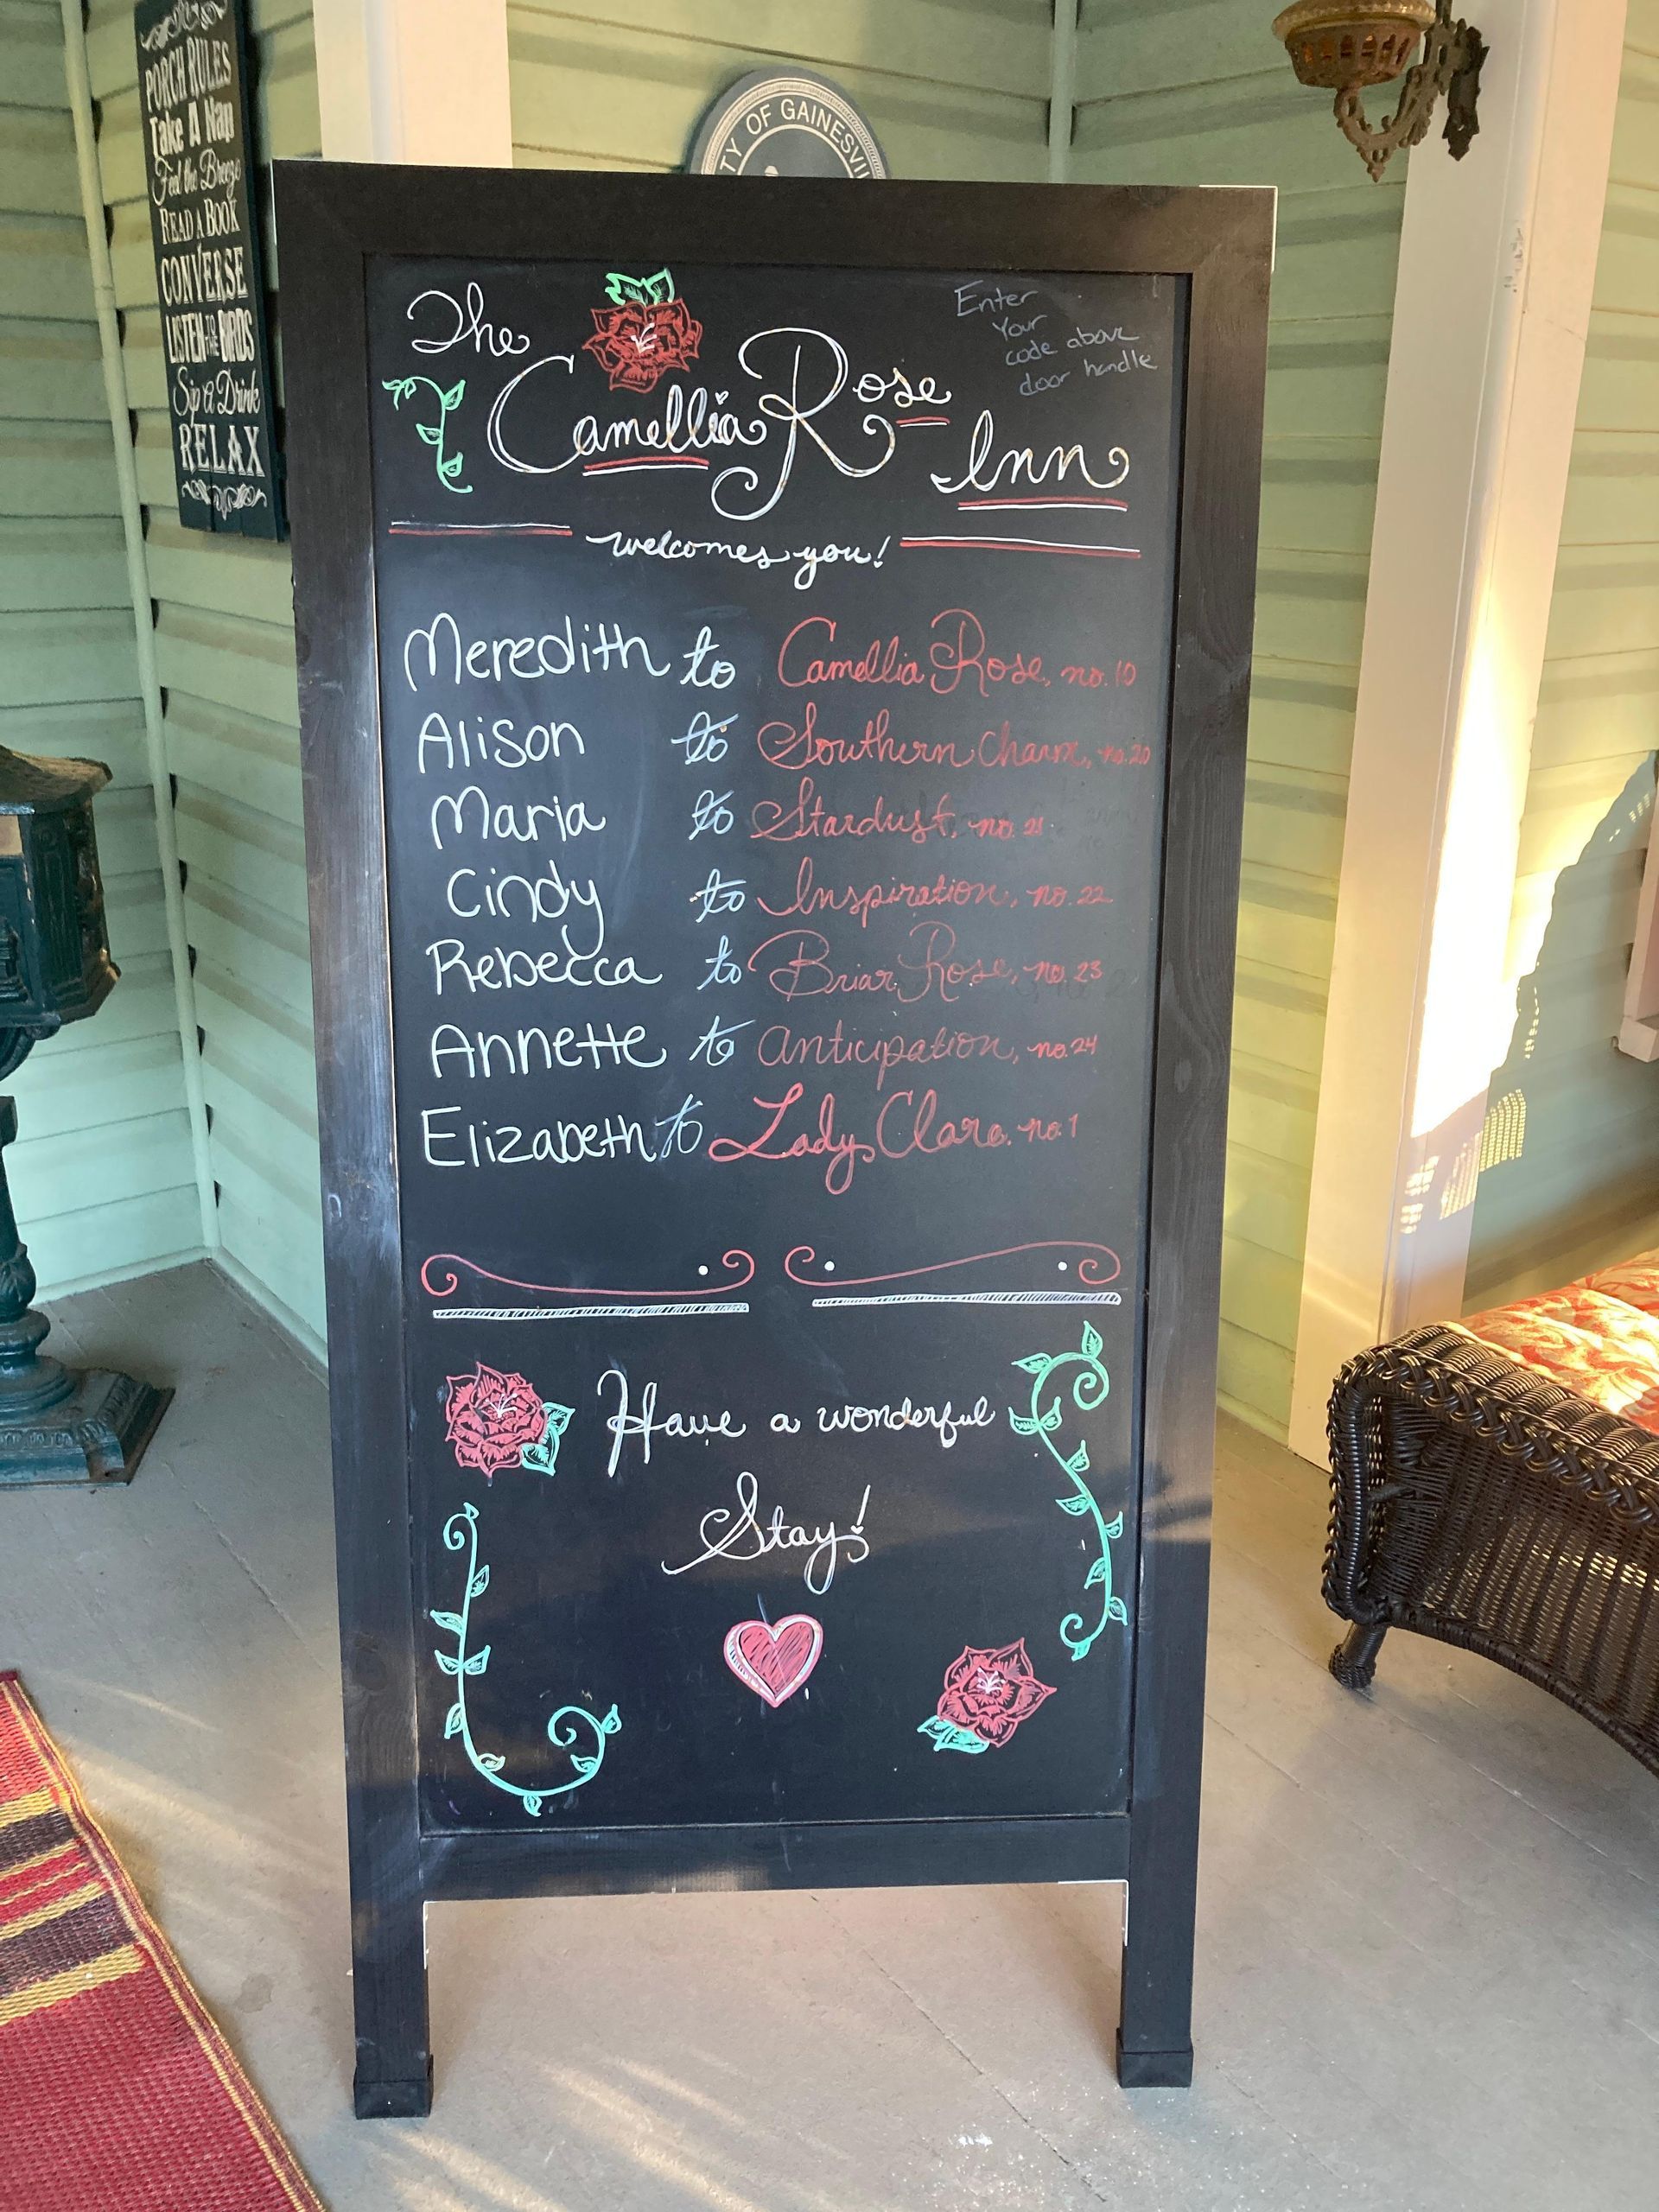 PORCH RULES
Take A Nap
Feel the Breeze
READ A BOOK
CONVERSE
LISTEN TO THE BIRDS
Sip A Drink
RELAX
TY OF GAINESVI
The
Camellia Rose
Inn
Enter
Your
code above
door handle
welcomes you!
Meredith to Camellia Rose, no. 10
Alison to Southern Charm, no. 20
Maria to Stardust, no. 21
Cindy to Inspiration, no. 22
Rebecca to Briar Rose, no. 23
Annette to Anticipation, no. 24
Elizabeth to Lady Clara. no. 1
Have a wonderful
Stay!